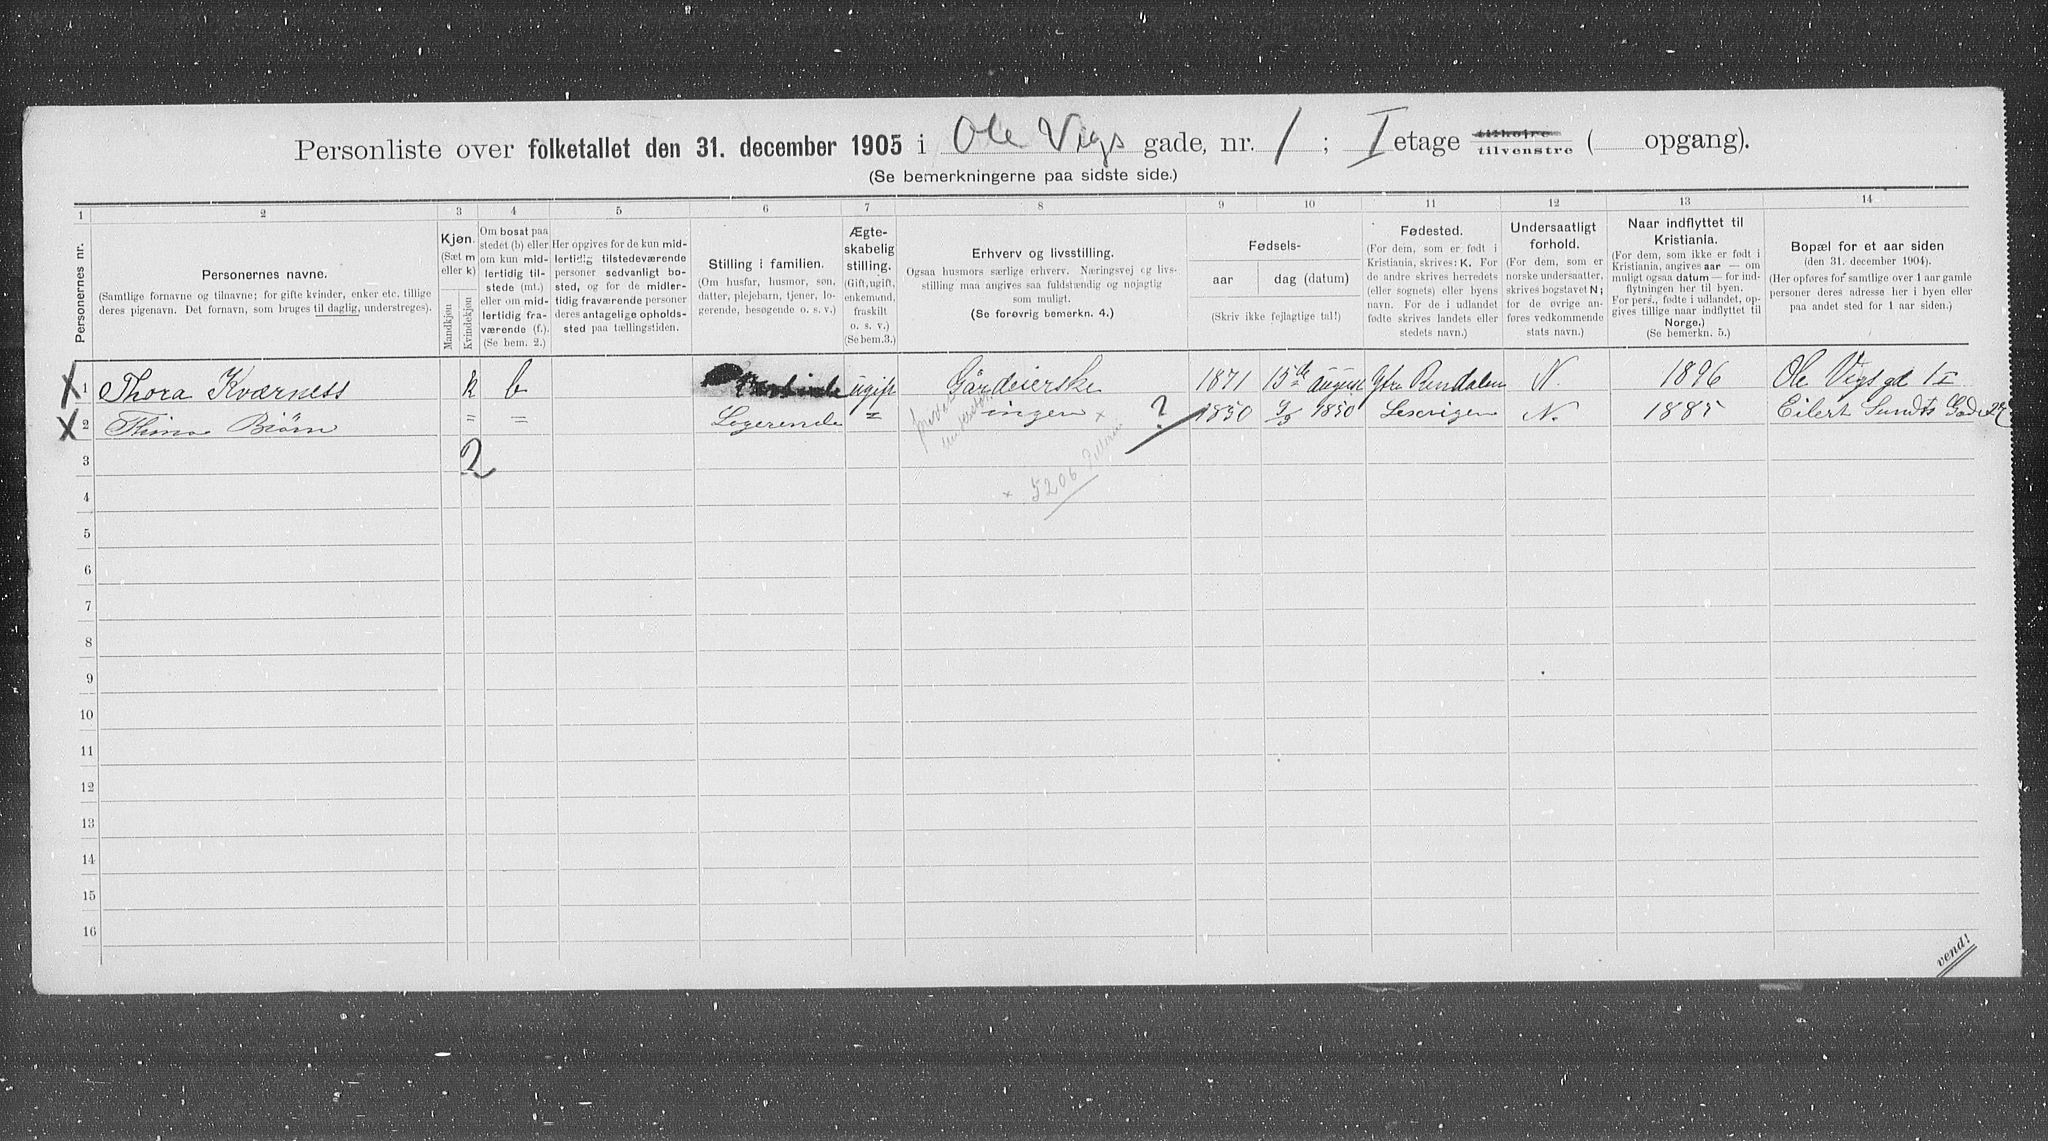 Personliste over folketallet den 31. december 1905 i Ole Vigs gade, nr. 1 ; I etage tilhøire tilvenstre ( opgang).
(Se bemerkningerne paa sidste side.)
1 2 3 4 5 6 7 8 9 10 11 12 13 14
Personernes nr.
Personernes navne.
(Samtlige fornavne og tilnavne; for gifte kvinder, enker etc. tillige
deres pigenavn. Det fornavn, som bruges til daglig, understreges).
Kjøn.
(Sæt m
eller k)
Mandkjøn
Kvindekjøn
Om bosat paa
stedet (b) eller
om kun mid-
lertidig til-
stede (mt.)
eller om mid-
lertidig fra-
værende (f.).
(Se bem. 2.)
Her opgives for de kun mid-
lertidig tilstedeværende
personer sedvanlig bo-
sted, og for de midler-
tidig fraværende personer
deres antagelige opholds-
sted paa tællingstiden.
Stilling i familien.
(Om husfar, husmor, søn,
datter, plejebarn, tjener, lo-
gerende, besøgende o. s. v.)
Ægte-
skabelig
stilling.
(Gift, ugift,
enkemand,
fraskilt
o. s. v.)
(Se bem.3.)
Erhverv og livsstilling.
Ogsaa husmors særlige erhverv. Næringsvej og livs-
stilling maa angives saa fuldstændig og nøjagtig
som muligt.
(Se forøvrig bemerkn. 4.)
Fødsels-
aar dag (datum)
(Skriv ikke fejlagtige tal!)
Fødested.
(For dem, som er født i
Kristiania, skrives: K. For
de andre skrives herredets
(eller sognets) eller byens
navn. For de i udlandet
fødte skrives landets eller
stedets navn.)
Undersaatligt
forhold.
(For dem, som er
norske undersaatter,
skrives bogstavet N;
for de øvrige an-
føres vedkommende
stats navn.)
Naar indflyttet til
Kristiania.
(For dem, som ikke er født i
Kristiania, angives aar — om
muligt ogsaa datum — for ind-
flytningen her til byen.
For pers., fødte i udlandet, op-
gives tillige naar indflyttet til
Norge.)
(Se bemerkn. 5.)
Bopæl for et aar siden
(den 31. december 1904).
(Her opføres for samtlige over 1 aar gamle
personer deres adresse her i byen eller
paa andet sted for 1 aar siden.)
X 1 Thora Kværness k b ugift 1871 15de august Ytre Rendalen N. 1896 Ole Vigs gd 1 I
X 2 Biørn = = Logerende = ingen × ? 1850 1850 N. 1885 Eilert Sundts Gade 27
3 2
4 × 5206
5
6
7
8
9
10
11
12
13
14
15
16
vend!